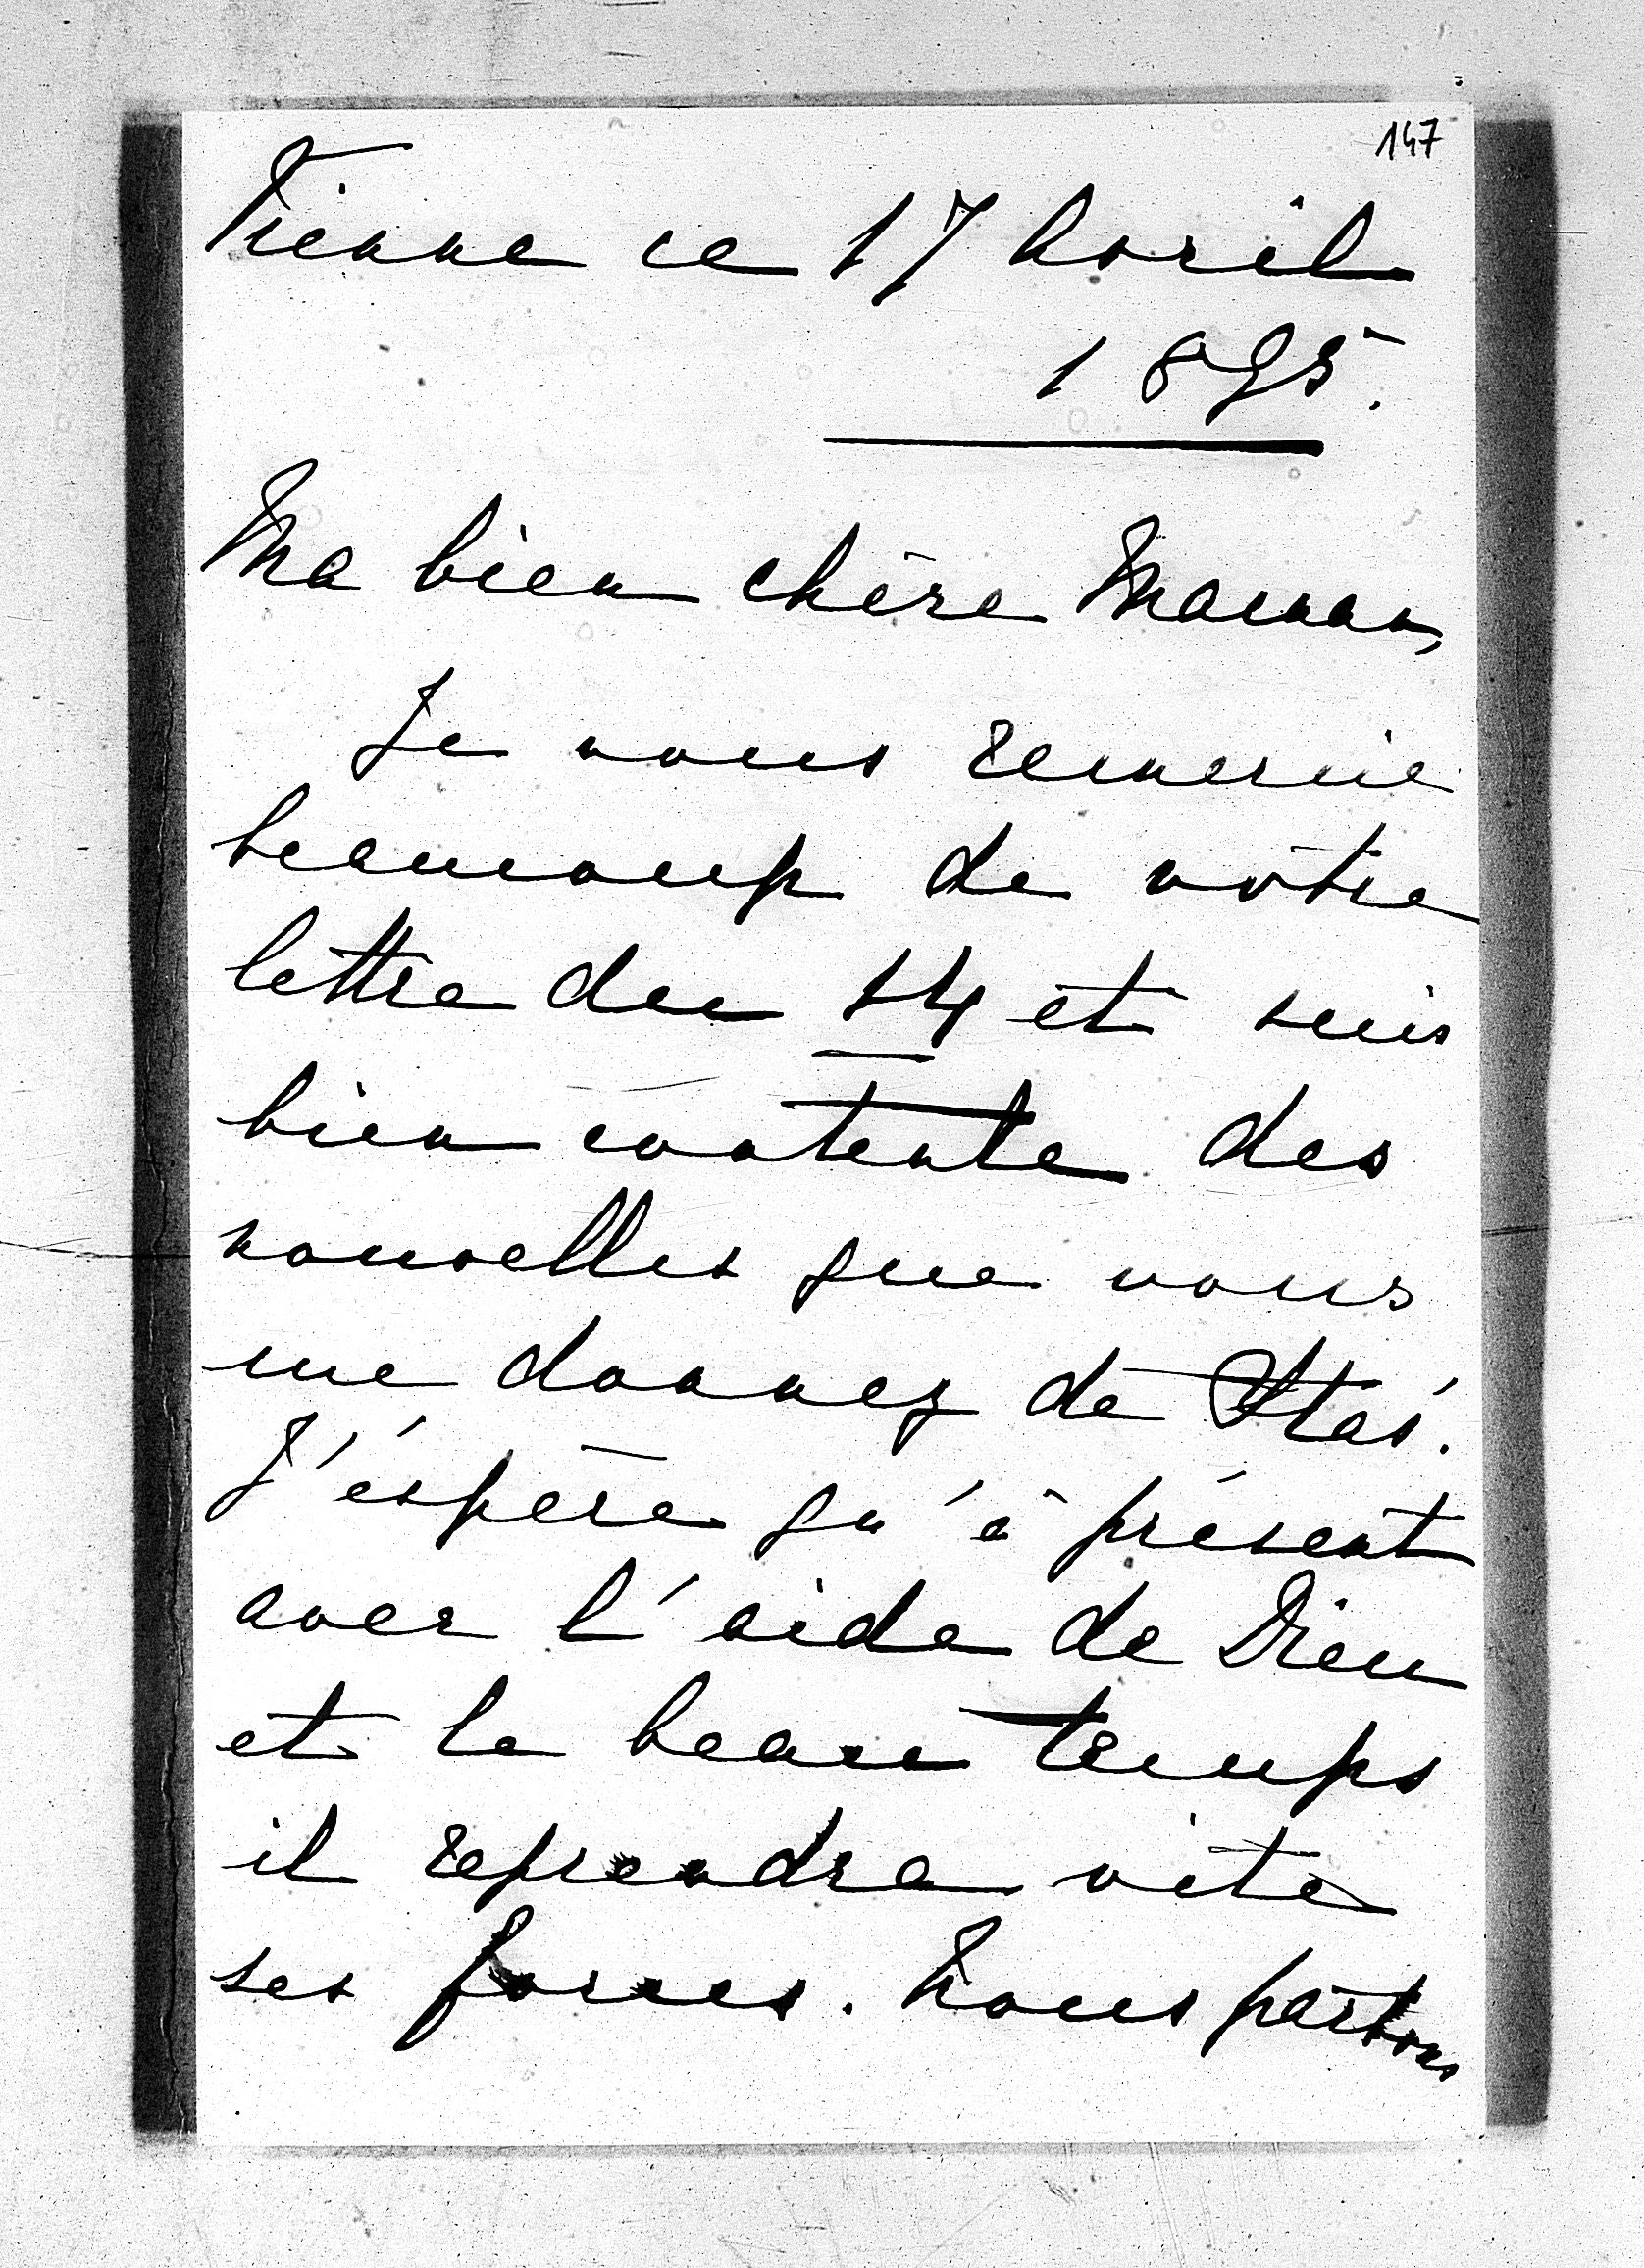 147
Vienne ce 17 Avril
1895.
Ma bien chère Maman,
Je vous remercie
beaucoup de vôtre
lettre du 14 et suis
bien contente des
nouvelles que vous
me donnez de Staś.
J'éspère qu'à présent
avec l'aide de Dieu
et le beau temps
il reprendra vite
ses forces. Nous partons